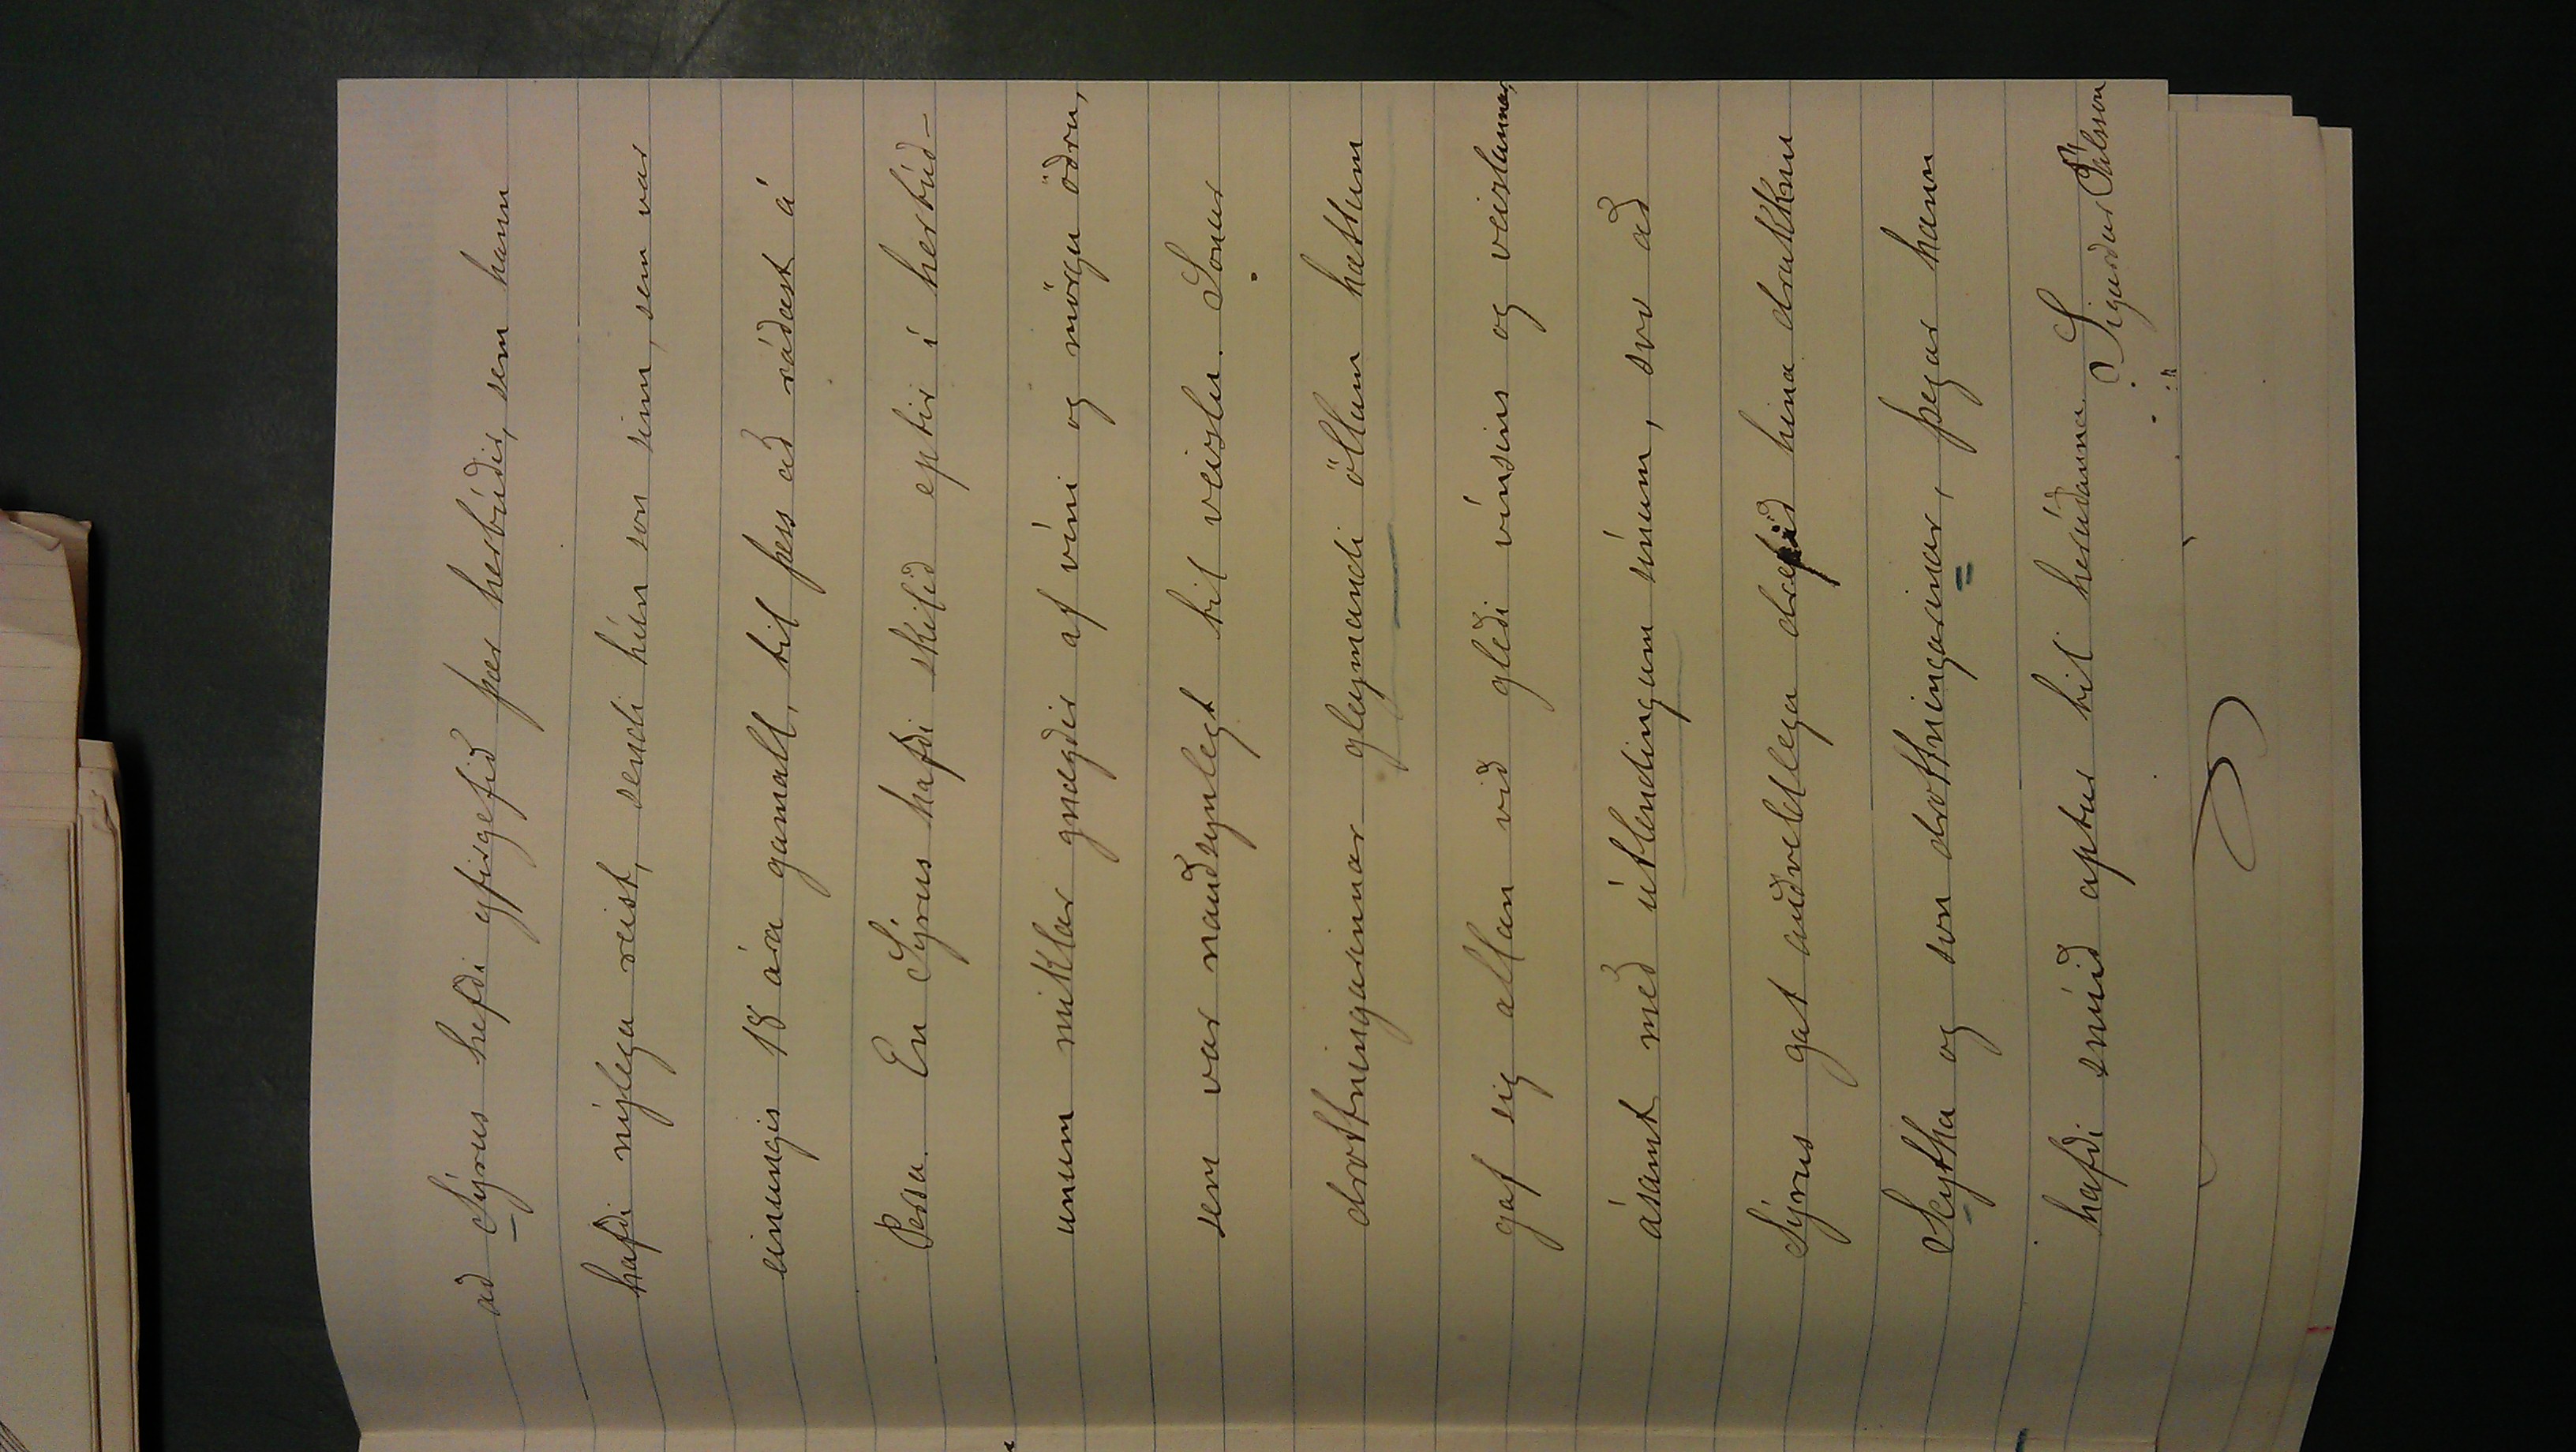 að Sýrus hefði yfirgefið þær herbúðir, sem hann
hafði nýlega reist, sendi hún son sinn, sem var
einungis 18 ára gamall, til þess að ráðast á
Persa. En Sýrus hafði skilið eptir í herbúð-
unum miklar gnægðir af víni og mörgu öðru,
sem var nauðsynlegt til veislu. Sonur
drottningarinnar gleymandi öllum hættum
gaf sig allan við gleði vínsins og veislunnar,
ásamt með útlendingum sínum, svo að
Sýrus gat auðveldlega drepið hina drukknu
Scytha og son drottningarinar, þegar hann
hafði snúið aptur til herúðanna.
Sigurður Pálsson